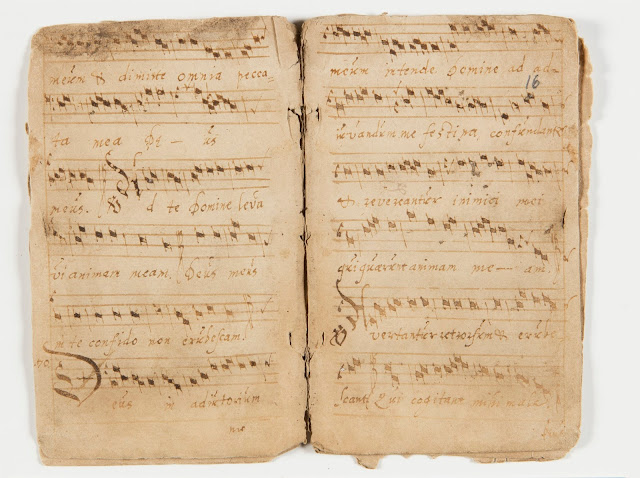 meum & dimitte omnia pecca-
ta mea De - us
meus. Ad te Domine leva
vi animam meam. Deus meus
in te confido non erubescam.
Deus in adiutorium
me
meum intende Domine ad ad-
16
iuvandum me festina, confundantur
& revereantur inimici mei
qui quærunt animam me - am.
Avertantur retrorsum & erube
scant Qui cogitant mihi mala